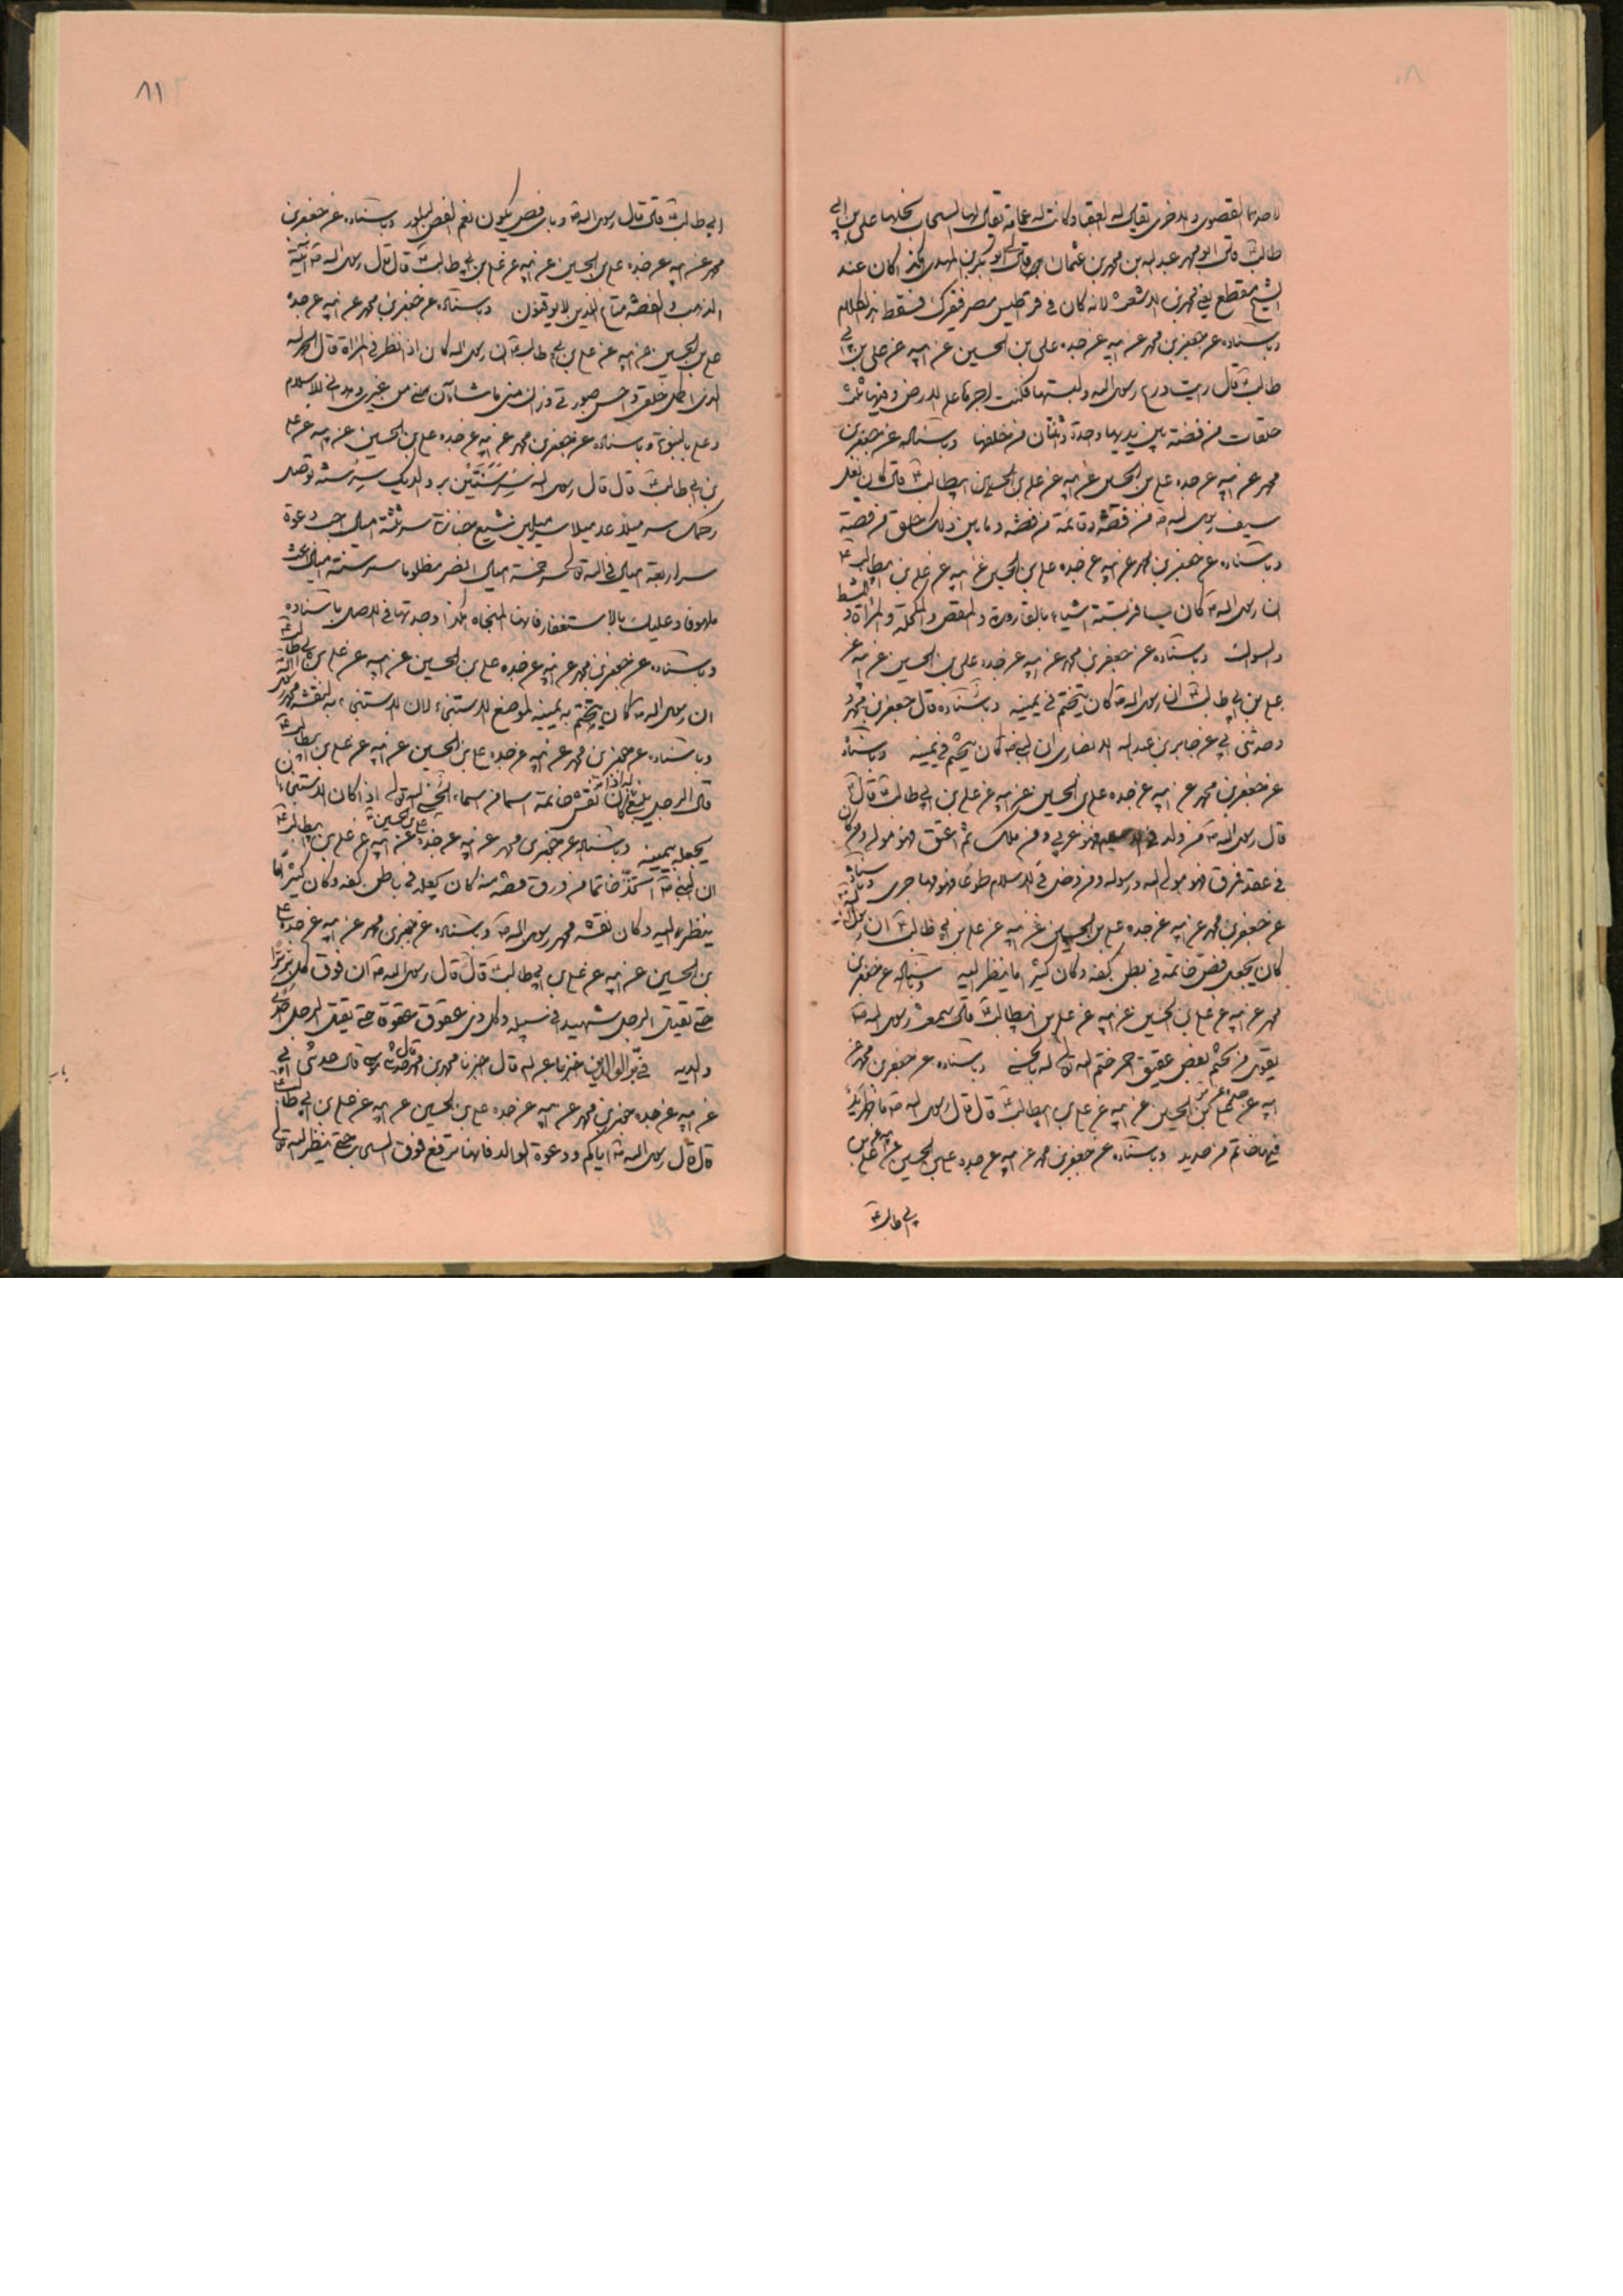 لاحدهما القصوى والاخرى يقال لها العضباء وكانت له عمامة يقال لها السحاب نحلها علي بن ابي
طالب ع قال ابو محمد عبد الله بن محمد بن عثمان قال لي ابو بكر بن المهدي كان عند
الشيخ مقطع يعني محمد بن الاشعث لانه كان في قراطيس مصر فسقط الكلام
وباسناده عن جعفر بن محمد عن ابيه عن جده علي بن الحسين عن ابيه عن علي بن ابي
طالب ع قال رايت درع رسول الله ولبستها فكنت اجرها على الارض وفيها ثلث
حلقات من فضة بين يديها واحدة واثنتان من خلفها وباسناده عن جعفر بن
محمد عن ابيه عن جده علي بن الحسين عن ابيه عن علي بن ابيطالب ع قال كان نعل
سيف رسول الله ص من فضة وقائمة من فضة وما بين ذلك حلق من فضة
وباسناده عن جعفر بن محمد عن ابيه عن جده علي بن الحسين عن ابيه عن علي بن ابيطالب ع
ان رسول الله ص كان يسافر بستة اشياء بالقارورة والمقص والمكحلة والمراة والمشط
والسواك وباسناده عن جعفر بن محمد عن ابيه عن جده علي بن الحسين عن ابيه عن
علي بن ابي طالب ع ان رسول الله ص كان يتختم في يمينه وباسناده قال جعفر بن محمد و
حدثني ابي عن جابر بن عبد الله الانصاري ان النبي ص كان يتختم في يمينه وباسناده
عن جعفر بن محمد عن ابيه عن جده علي بن الحسين عن ابيه عن علي بن ابي طالب ع قال
قال رسول الله ص من ولد في الاسلام فهو عربي ومن ملك ثم اعتق فهو مولى ومن كان
في عقد فهو مولى الله ورسوله ومن دخل في الاسلام طوعا فهو مهاجري وباسناده
عن جعفر بن محمد عن ابيه عن جده علي بن الحسين عن ابيه عن علي بن ابي طالب ع ان رسول الله ص
كان يجعل فص خاتمه في بطن كفه وكان كثيرا ما ينظر اليه وباسناده عن جعفر بن
محمد عن ابيه عن علي بن الحسين عن ابيه عن علي بن ابيطالب ع قال سمعت رسول الله ص
يقول من تختم بفص عقيق احمر ختم الله تعالى له بالحسنى وباسناده عن جعفر بن محمد عن
ابيه عن جده علي بن الحسين عن ابيه عن علي بن ابيطالب ع قال قال رسول الله ص ما طهرت يد
فيها خاتم من حديد وباسناده عن جعفر بن محمد عن ابيه عن جده علي بن الحسين عن ابيه عن علي بن
ابي طالب ع
٨١
ابي طالب ع قال قال رسول الله ص يكون نعم الفص البلور وباسناده عن جعفر بن
محمد عن ابيه عن جده علي بن الحسين عن ابيه عن علي بن ابي طالب ع قال قال رسول الله ص آنية
الذهب والفضة متاع الذين لا يوقنون وباسناده عن جعفر بن محمد عن ابيه عن جده
علي بن الحسين عن ابيه عن علي بن ابي طالب ع ان رسول الله كان اذا نظر في المراة قال الحمد لله
الذي اكمل خلقي واحسن صورتي وزان مني ما شان من غيري وهداني للاسلام
وباسناده عن جعفر بن محمد عن ابيه عن جده علي بن الحسين عن ابيه عن علي
بن ابي طالب ع قال قال رسول الله سر سنتين بر والديك سر سنة توصل
رحمك سر ميلا عد ميلا سر ميلين شيع جنازة سر ثلثة اميال اجب دعوة
سر اربعة اميال في الله تعالى سر خمسة اميال انصر مظلوما سر ستة اميال اغث
ملهوفا وعليك بالاستغفار فانها المنجاه هكذا وجدتها في الاصل باسناده
وباسناده عن جعفر بن محمد عن ابيه عن جده علي بن الحسين عن ابيه عن علي بن ابي طالب ع
ان رسول الله ص كان يتختم به يمينه لموضع الاستنجاء لان الاستنجاء به لنقشه محمد رسول الله
وباسناده عن جعفر بن محمد عن ابيه عن جده علي بن الحسين عن ابيه عن علي بن ابيطالب ع
قال الرجل ينبغي له اذا كان نقش خاتمه اسما من اسماء الله تعالى اذا كان الاستنجاء ان
يجعله بيمينه وباسناده عن جعفر بن محمد عن ابيه عن جده علي بن الحسين عن ابيه عن علي بن ابيطالب ع
ان النبي ص اتخذ خاتما من ورق فضه منه كان يجعله في باطن كفه وكان كثيرا ما
ينظر اليه وكان نقشه محمد رسول الله ص وباسناده عن جعفر بن محمد عن ابيه عن جده علي
بن الحسين عن ابيه عن علي بن ابي طالب ع قال قال رسول الله ص ان فوق كل بر برا
حتى يقتل الرجل شهيدا في سبيله وكل ذي عقوق عقوق حتى يقتل الرجل احد
والديه في بر الوالدين اخبرنا عبد الله قال اخبرنا محمد بن محمد قال حدثني موسى قال حدثني ابي
عن ابيه عن جده جعفر بن محمد عن ابيه عن جده علي بن الحسين عن ابيه عن علي بن ابي طالب ع
قال قال رسول الله ص اياكم ودعوة الوالد فانها ترفع فوق السحاب حتى ينظر الله تعالى